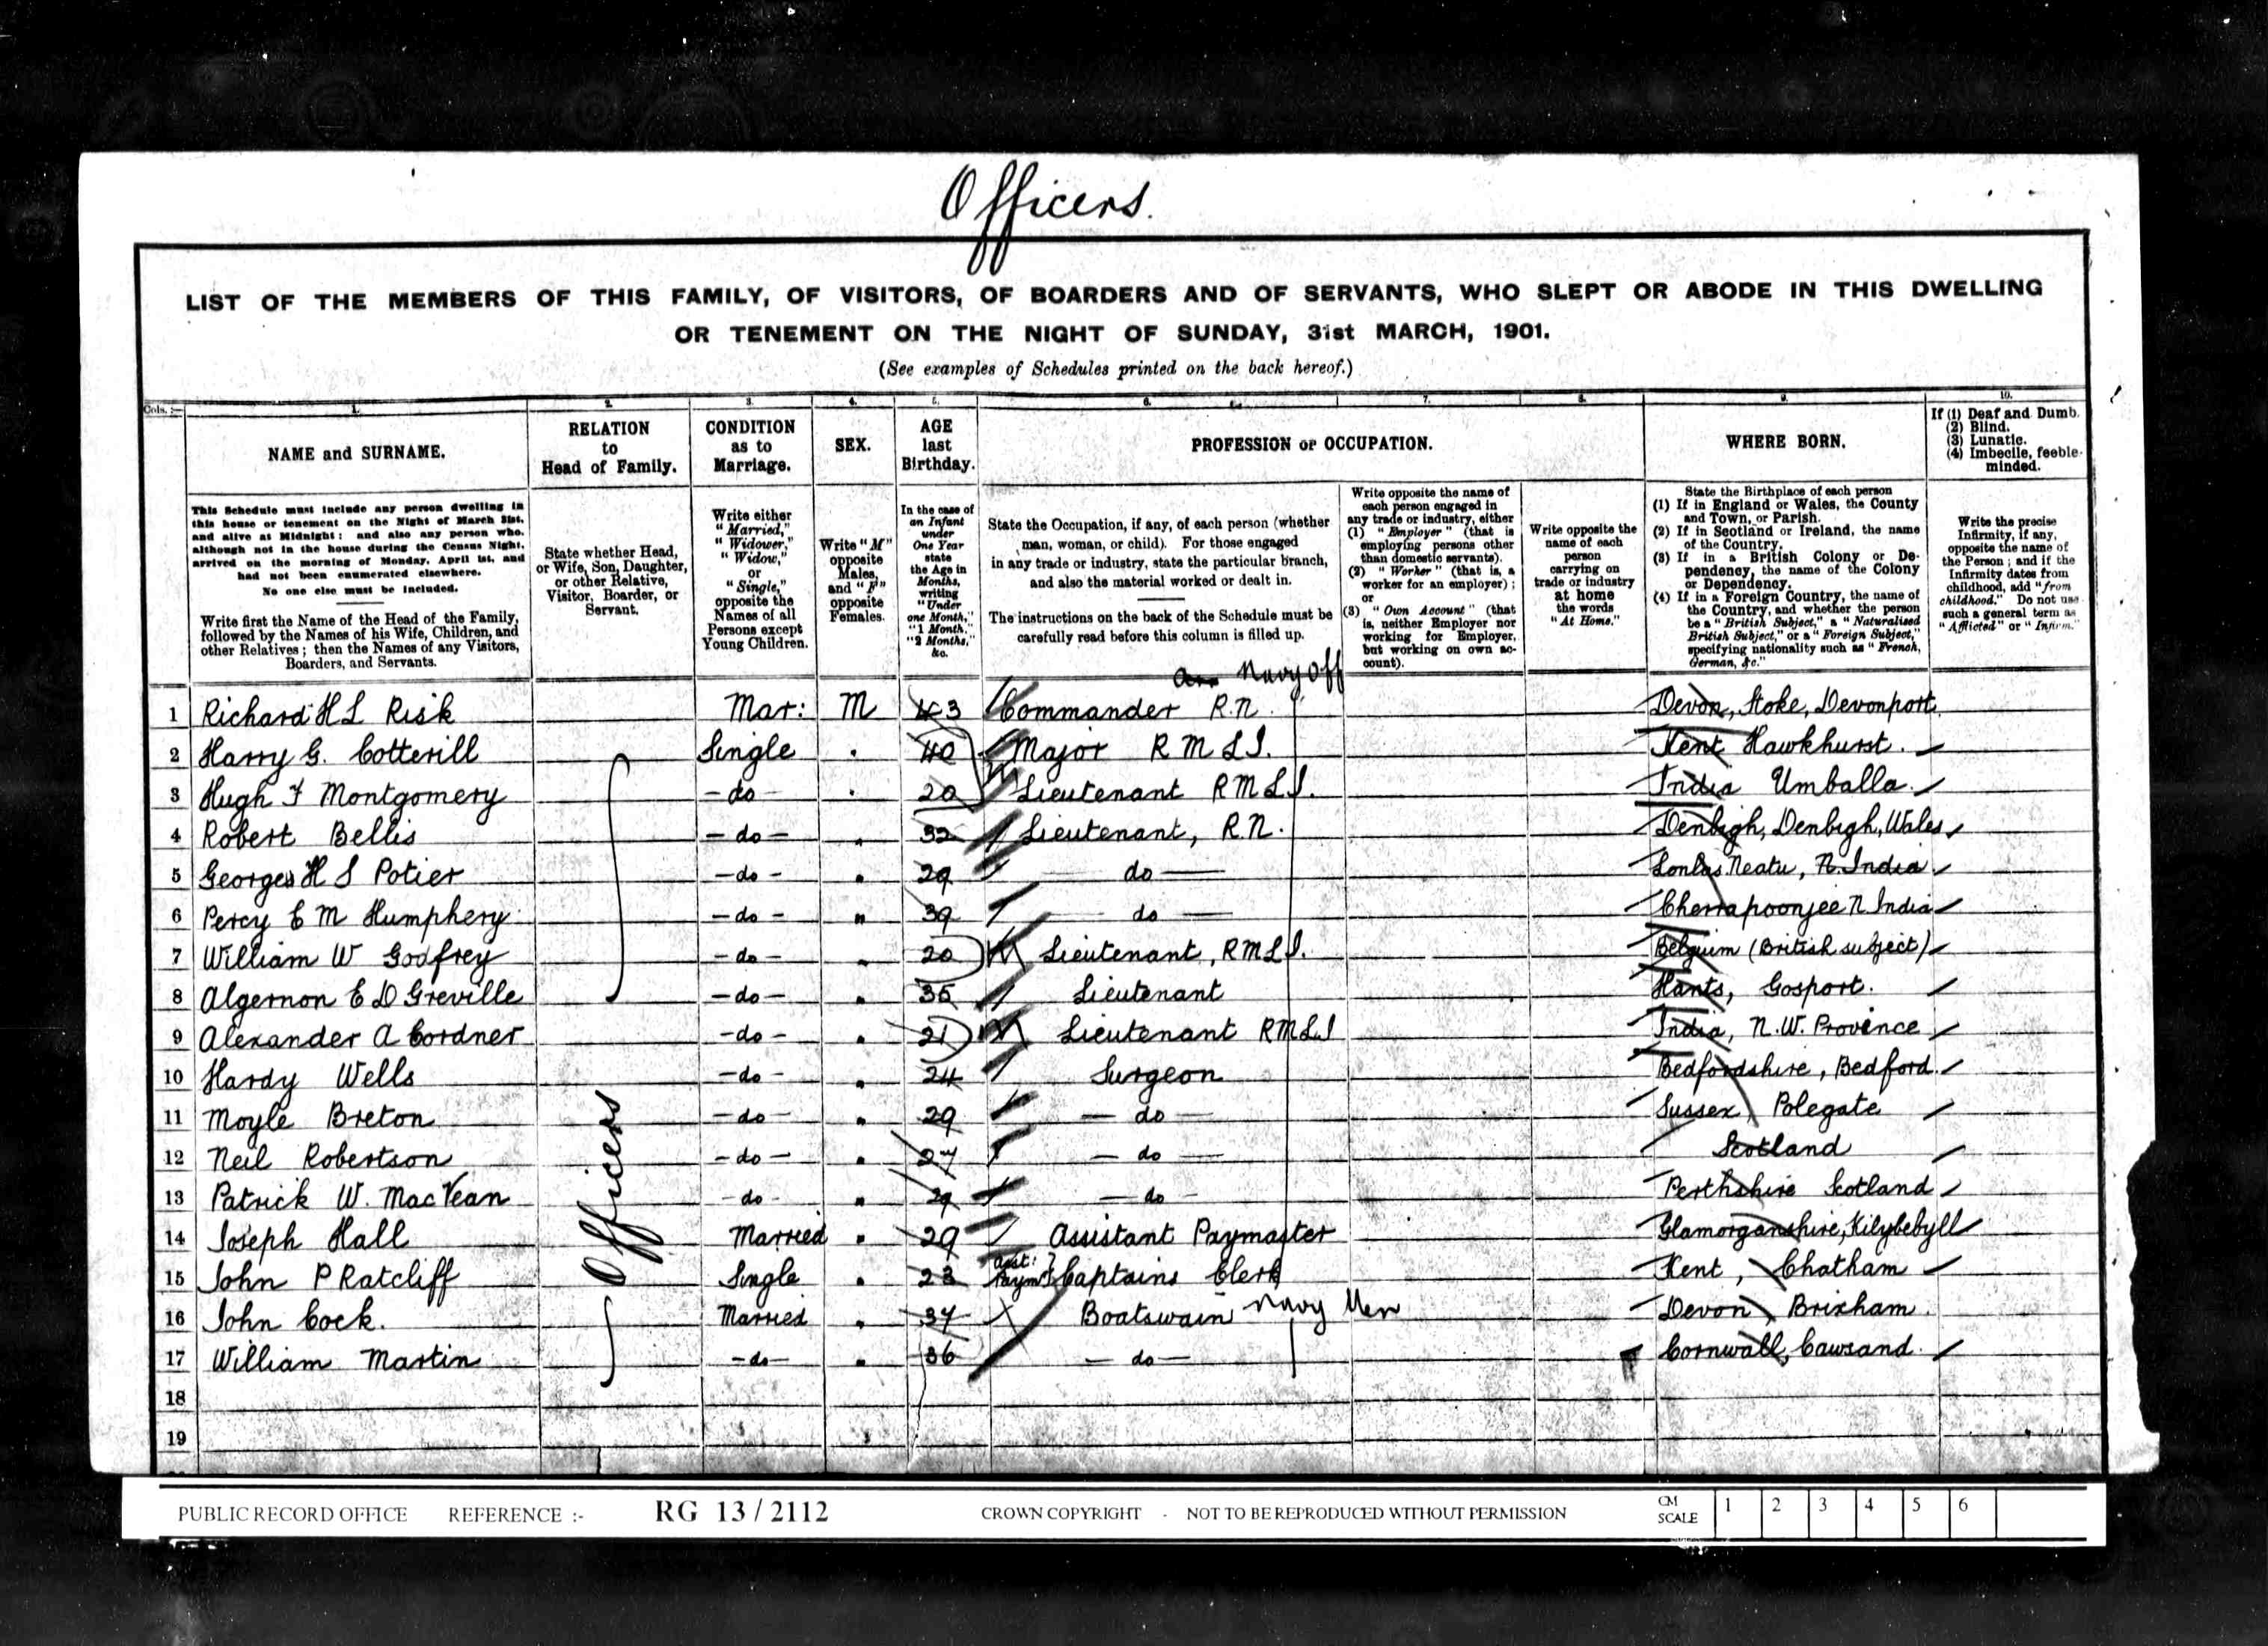 Officers.
LIST OF THE MEMBERS OF THIS FAMILY, OF VISITORS, OF BOARDERS AND OF SERVANTS, WHO SLEPT OR ABODE IN THIS DWELLING
OR TENEMENT ON THE NIGHT OF SUNDAY, 31st MARCH, 1901.
(See examples of Schedules printed on the back hereof.)
Cols. :— 1. 2. 3. 4. 5. 6. 7. 8. 9. 10.
NAME and SURNAME.
This Schedule must include any person dwelling in
this house or tenement on the Night of March 31st,
and alive at Midnight; and also any person who,
although not in the house during the Census Night,
arrived on the morning of Monday, April 1st, and
had not been enumerated elsewhere.
No one else must be included.
Write first the Name of the Head of the Family,
followed by the Names of his Wife, Children, and
other Relatives; then the Names of any Visitors,
Boarders, and Servants.
RELATION
to
Head of Family.
State whether Head,
or Wife, Son, Daughter,
or other Relative,
Visitor, Boarder, or
Servant.
CONDITION
as to
Marriage.
Write either
"Married,"
"Widower,"
"Widow,"
or
"Single,"
opposite the
Names of all
Persons except
Young Children.
SEX.
Write "M"
opposite
Males,
and "F"
opposite
Females.
AGE
last
Birthday.
In the case of
an Infant
under
One Year
state
the Age in
Months,
writing
"Under
one Month,"
"1 Month,"
"2 Months,"
&c.
PROFESSION or OCCUPATION.
State the Occupation, if any, of each person (whether
man, woman, or child). For those engaged
in any trade or industry, state the particular branch,
and also the material worked or dealt in.
The instructions on the back of the Schedule must be
carefully read before this column is filled up.
Write opposite the name of
each person engaged in
any trade or industry, either
(1) "Employer" (that is
employing persons other
than domestic servants),
(2) "Worker" (that is, a
worker for an employer);
or
(3) "Own Account" (that
is, neither Employer nor
working for Employer,
but working on own ac-
count).
Write opposite the
name of each
person
carrying on
trade or industry
at home
the words
"At Home."
WHERE BORN.
State the Birthplace of each person
(1) If in England or Wales, the County
and Town, or Parish.
(2) If in Scotland or Ireland, the name
of the Country.
(3) If in a British Colony or De-
pendency, the name of the Colony
or Dependency.
(4) If in a Foreign Country, the name of
the Country, and whether the person
be a "British Subject," a "Naturalised
British Subject," or a "Foreign Subject,"
specifying nationality such as "French,
German, &c."
If (1) Deaf and Dumb.
(2) Blind.
(3) Lunatic.
(4) Imbecile, feeble-
minded.
Write the precise
Infirmity, if any,
opposite the name of
the Person; and if the
Infirmity dates from
childhood, add "from
childhood." Do not use
such a general term as
"Afflicted" or "Infirm."
Navy Off
1 Richard H L Risk Mar: M 43 Commander R.N. Devon, Stoke, Devonport
2 Harry G. Cotterill Single " 40 Major R M L I. Kent Hawkhurst.
3 Hugh F Montgomery -do- " 20 Lieutenant R M L I. India Umballa
4 Robert Bellis -do- " 32 Lieutenant, R.N. Denbigh, Denbigh, Wales
5 George H S Potier -do- " 29 do N. India
6 Percy E M Humphery -do- " 39 do Cherrapoonjee N India
7 William W Godfrey -do- " 20 Lieutenant, R M L I. Belguim (British subject)
8 Algernon E D Greville -do- " 35 Lieutenant Hants, Gosport.
9 Alexander A Cordner -do- " 21 Lieutenant R M L I India, N.W. Province
10 Hardy Wells -do- " 24 Surgeon Bedfordshire, Bedford.
11 Moyle Breton -do- " 29 -do- Sussex, Polegate
12 Neil Robertson -do- " 27 -do- Scotland
13 Patrick W. MacVean -do- " 29 -do- Perthshire Scotland
14 Joseph Hall Married " 29 Assistant Paymaster Glamorganshire, Kilybebyll
15 John P Ratcliff Single " 23 Asst: Paymr Captains Clerk Kent, Chatham
16 John Cock. Married " 37 Boatswain Navy Men Devon, Brixham.
17 William Martin -do- " 36 -do- Cornwall, Cawsand.
18
19
Officers
PUBLIC RECORD OFFICE REFERENCE :- RG 13 / 2112 CROWN COPYRIGHT - NOT TO BE REPRODUCED WITHOUT PERMISSION CM SCALE 1 2 3 4 5 6